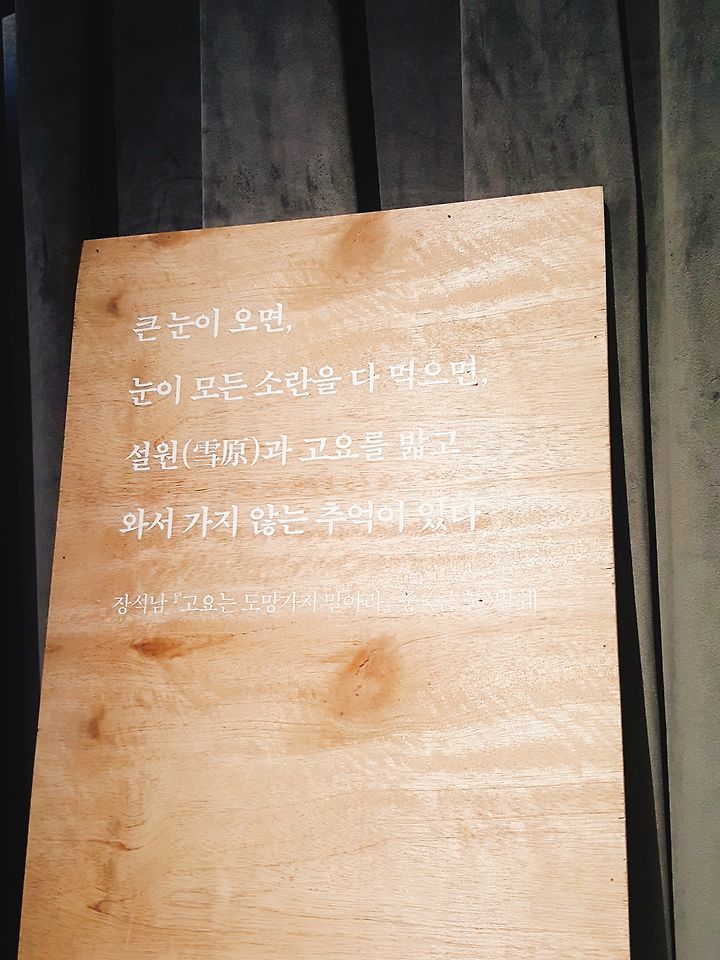 큰 눈이 오면,
눈이 모든 소란을 다 먹으면,
설원(雪原)과 고요를 밟고
와서 가지 않는 추억이 있다
장석남 『고요는 도망가지 말아라』 중